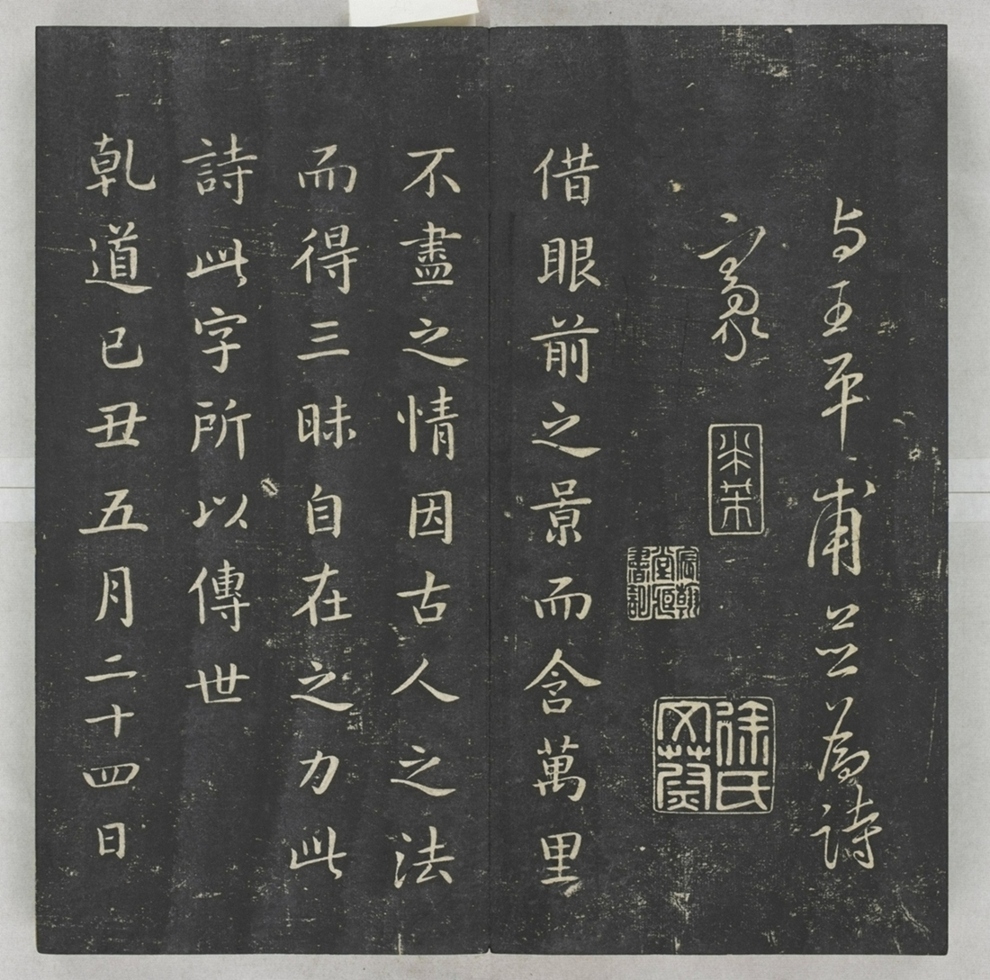 与王平甫並為詩
家
借眼前之景而含萬里
不盡之情因古人之法
而得三昧自在之力此
詩此字所以傳世
乾道己丑五月二十四日
徐氏